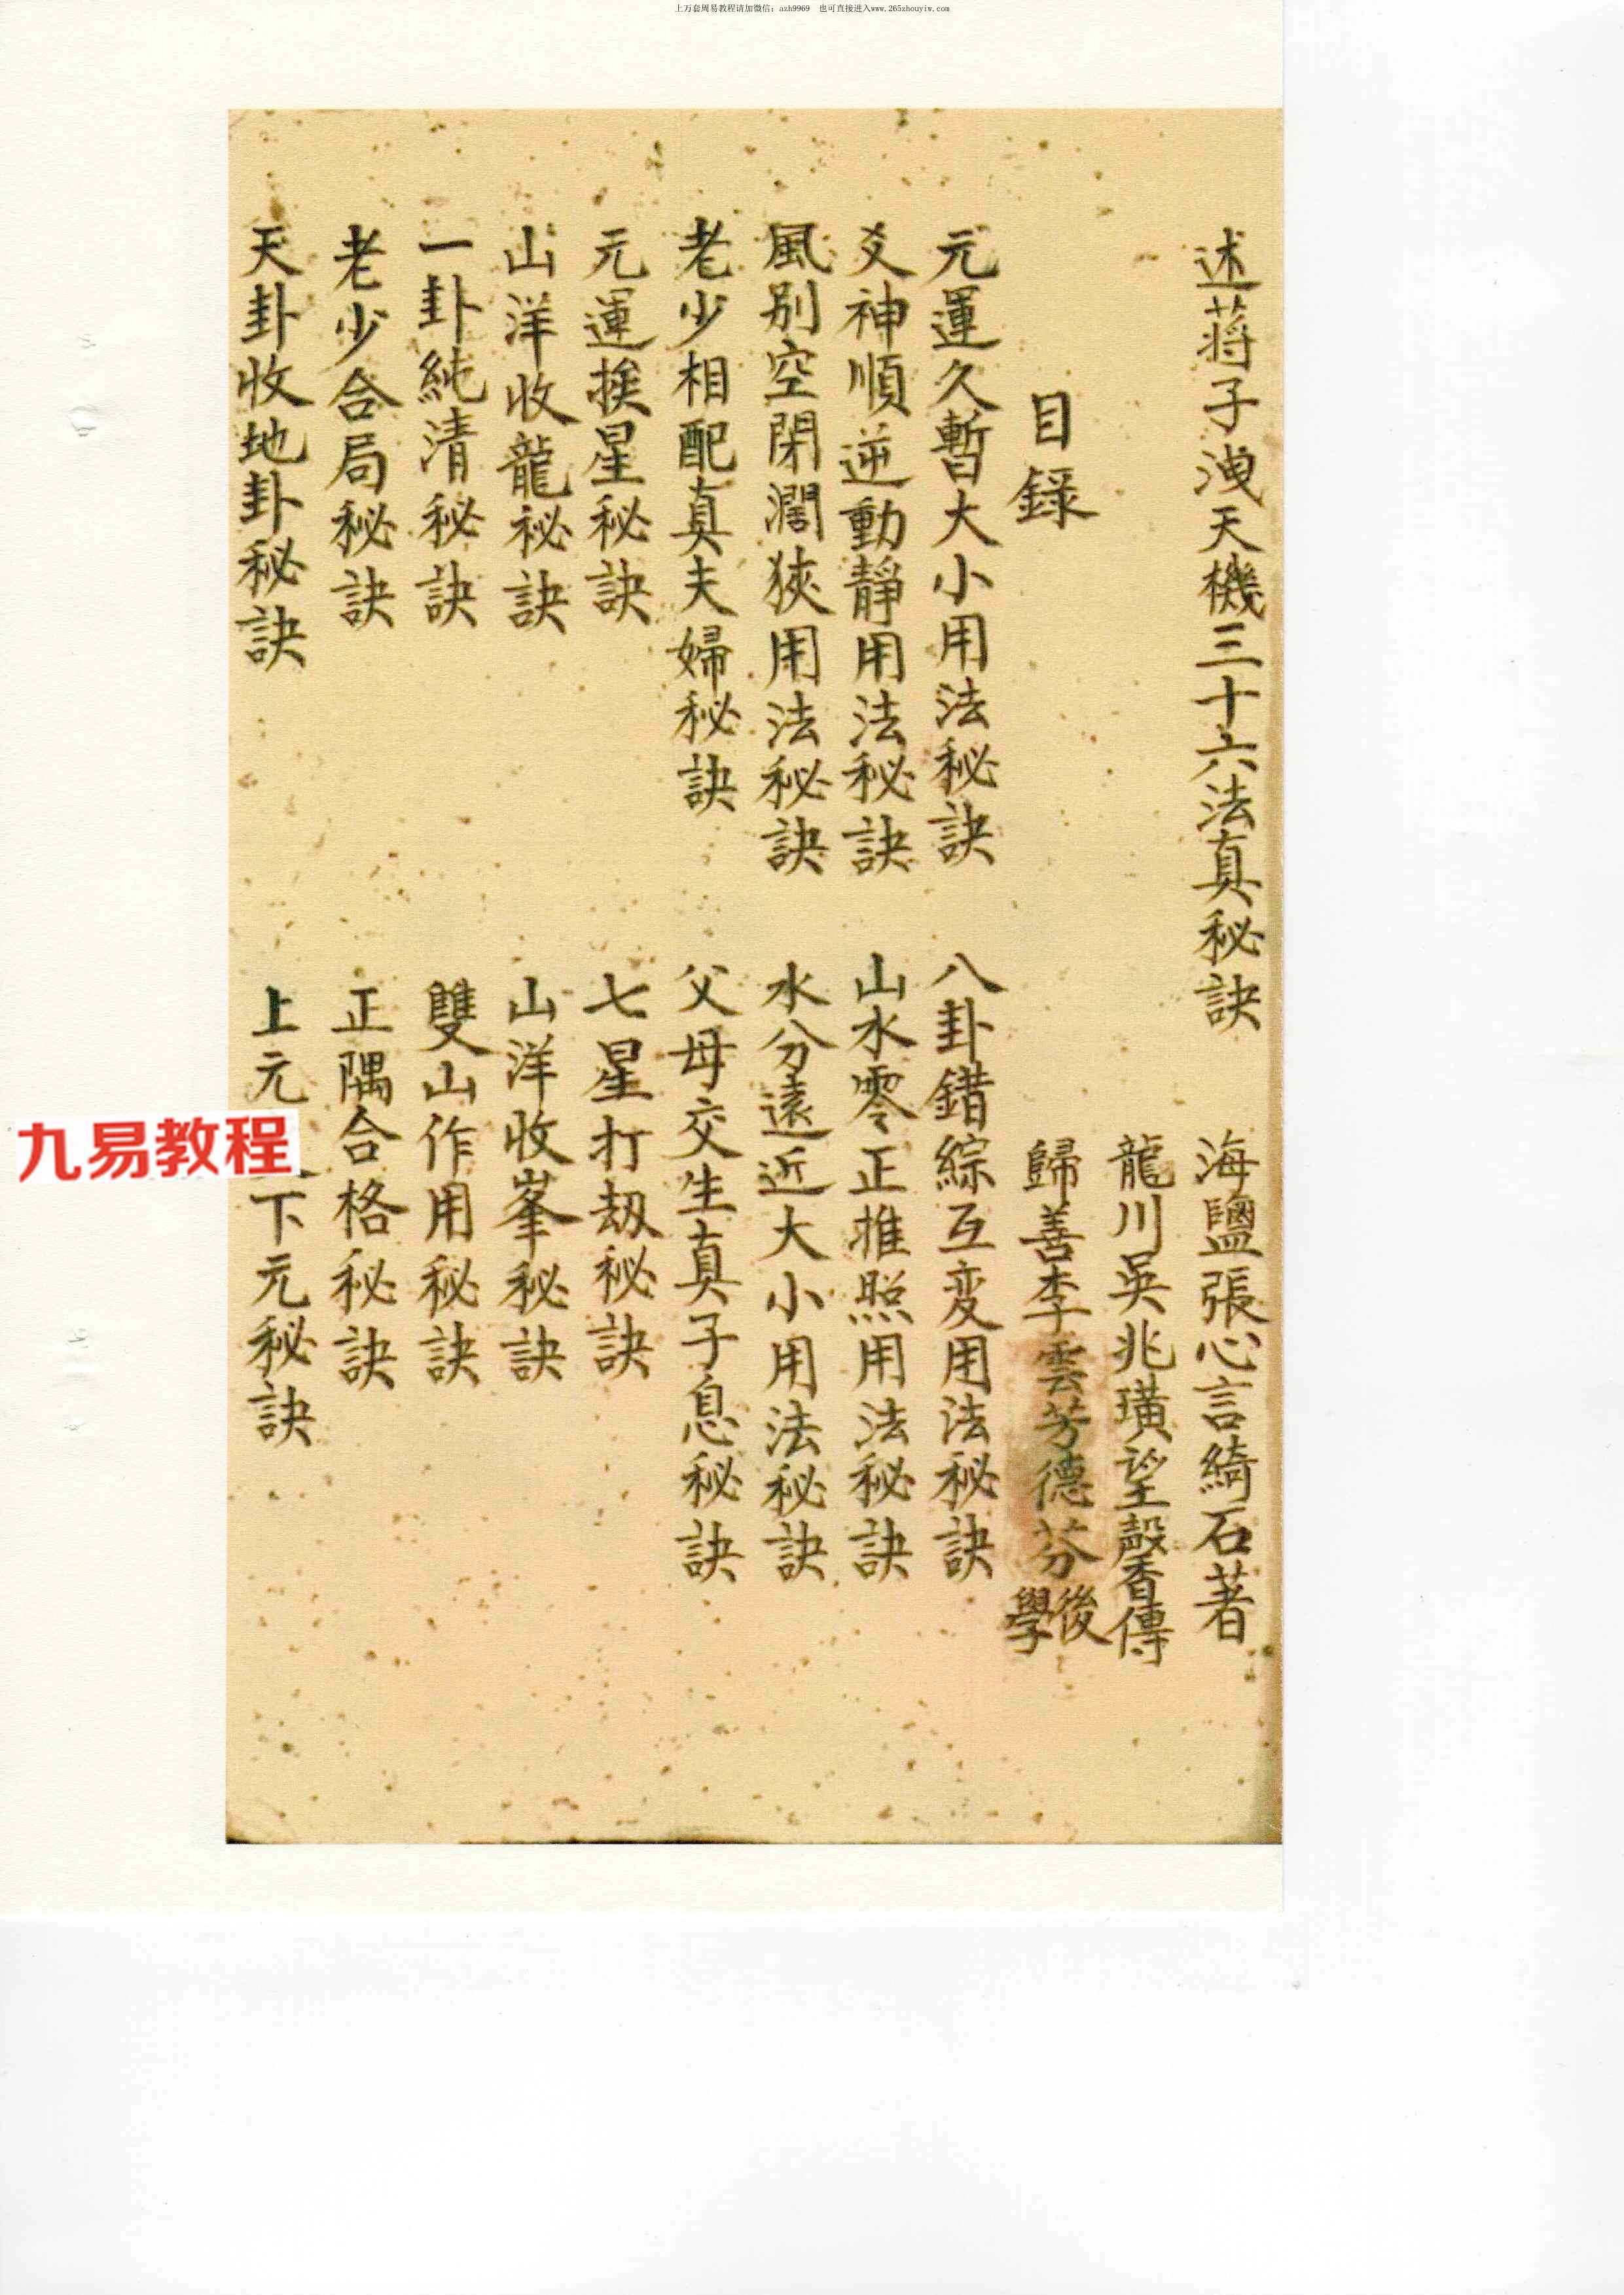 上万套周易教程请加微信：azh9969　也可直接进入www.265zhouyiw.com
述蒋子洩天機三十六法真秘訣
海鹽張心言綺石著
龍川吳兆璜望馨香傳
歸善李雲芳德芬後學
目錄
元運久暫大小用法秘訣
八卦錯綜互変用法秘訣
爻神順逆動靜用法秘訣
山水零正推照用法秘訣
風別空閑濶狹用法秘訣
水分遠近大小用法秘訣
老少相配真夫婦秘訣
父母交生真子息秘訣
元運挨星秘訣
七星打刼秘訣
山洋收龍秘訣
山洋收峯秘訣
一卦純清秘訣
雙山作用秘訣
老少合局秘訣
正隅合格秘訣
天卦收地卦秘訣
上元下元秘訣
九易教程